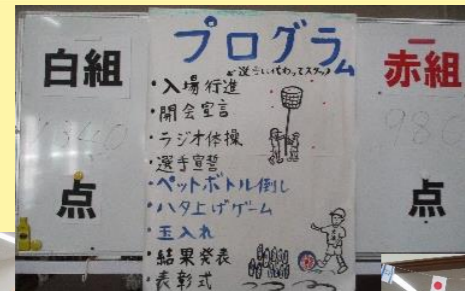 白組
点
プログラム
・入場行進
・開会宣言
・ラジオ体操
・選手宣誓
・ペットボトル倒し
・ハタ上げゲーム
・玉入れ
・結果発表
・表彰式
赤組
点